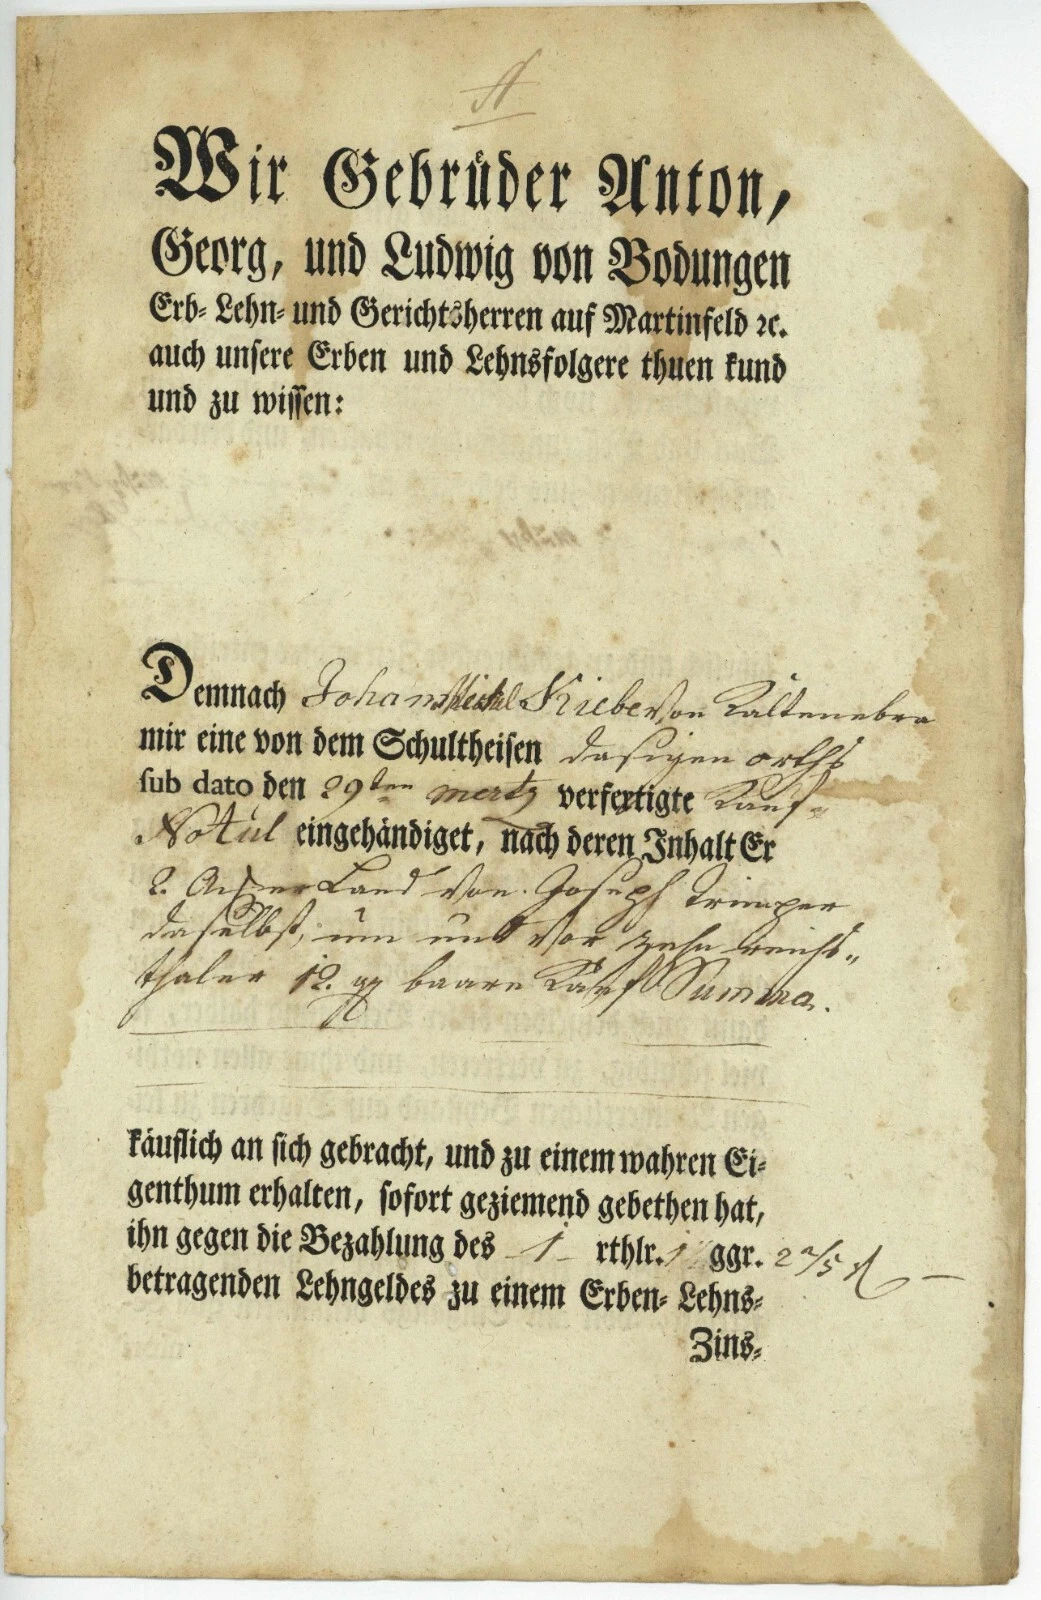 A
Wir Gebrüder Anton,
Georg, und Ludwig von Bodungen
Erb- Lehn- und Gerichtsherren auf Martinfeld ꝛc.
auch unsere Erben und Lehnsfolgere thuen kund
und zu wissen:
Demnach Johann Michel Kiebe von Kaltenebra
mir eine von dem Schultheisen dasigen orths
sub dato den 29ten mertz verfertigte Kauf-
Notul eingehändiget, nach deren Inhalt Er
2. Acker Land von Joseph Trümper
daselbst, um und vor zehn reichs-
thaler 12. ggr baare Kauf Summa.
käuflich an sich gebracht, und zu einem wahren Ei-
genthum erhalten, sofort geziemend gebethen hat,
ihn gegen die Bezahlung des 1 rthlr. 1 ggr. 2 2/5 ₰
betragenden Lehngeldes zu einem Erben- Lehns-
Zins-